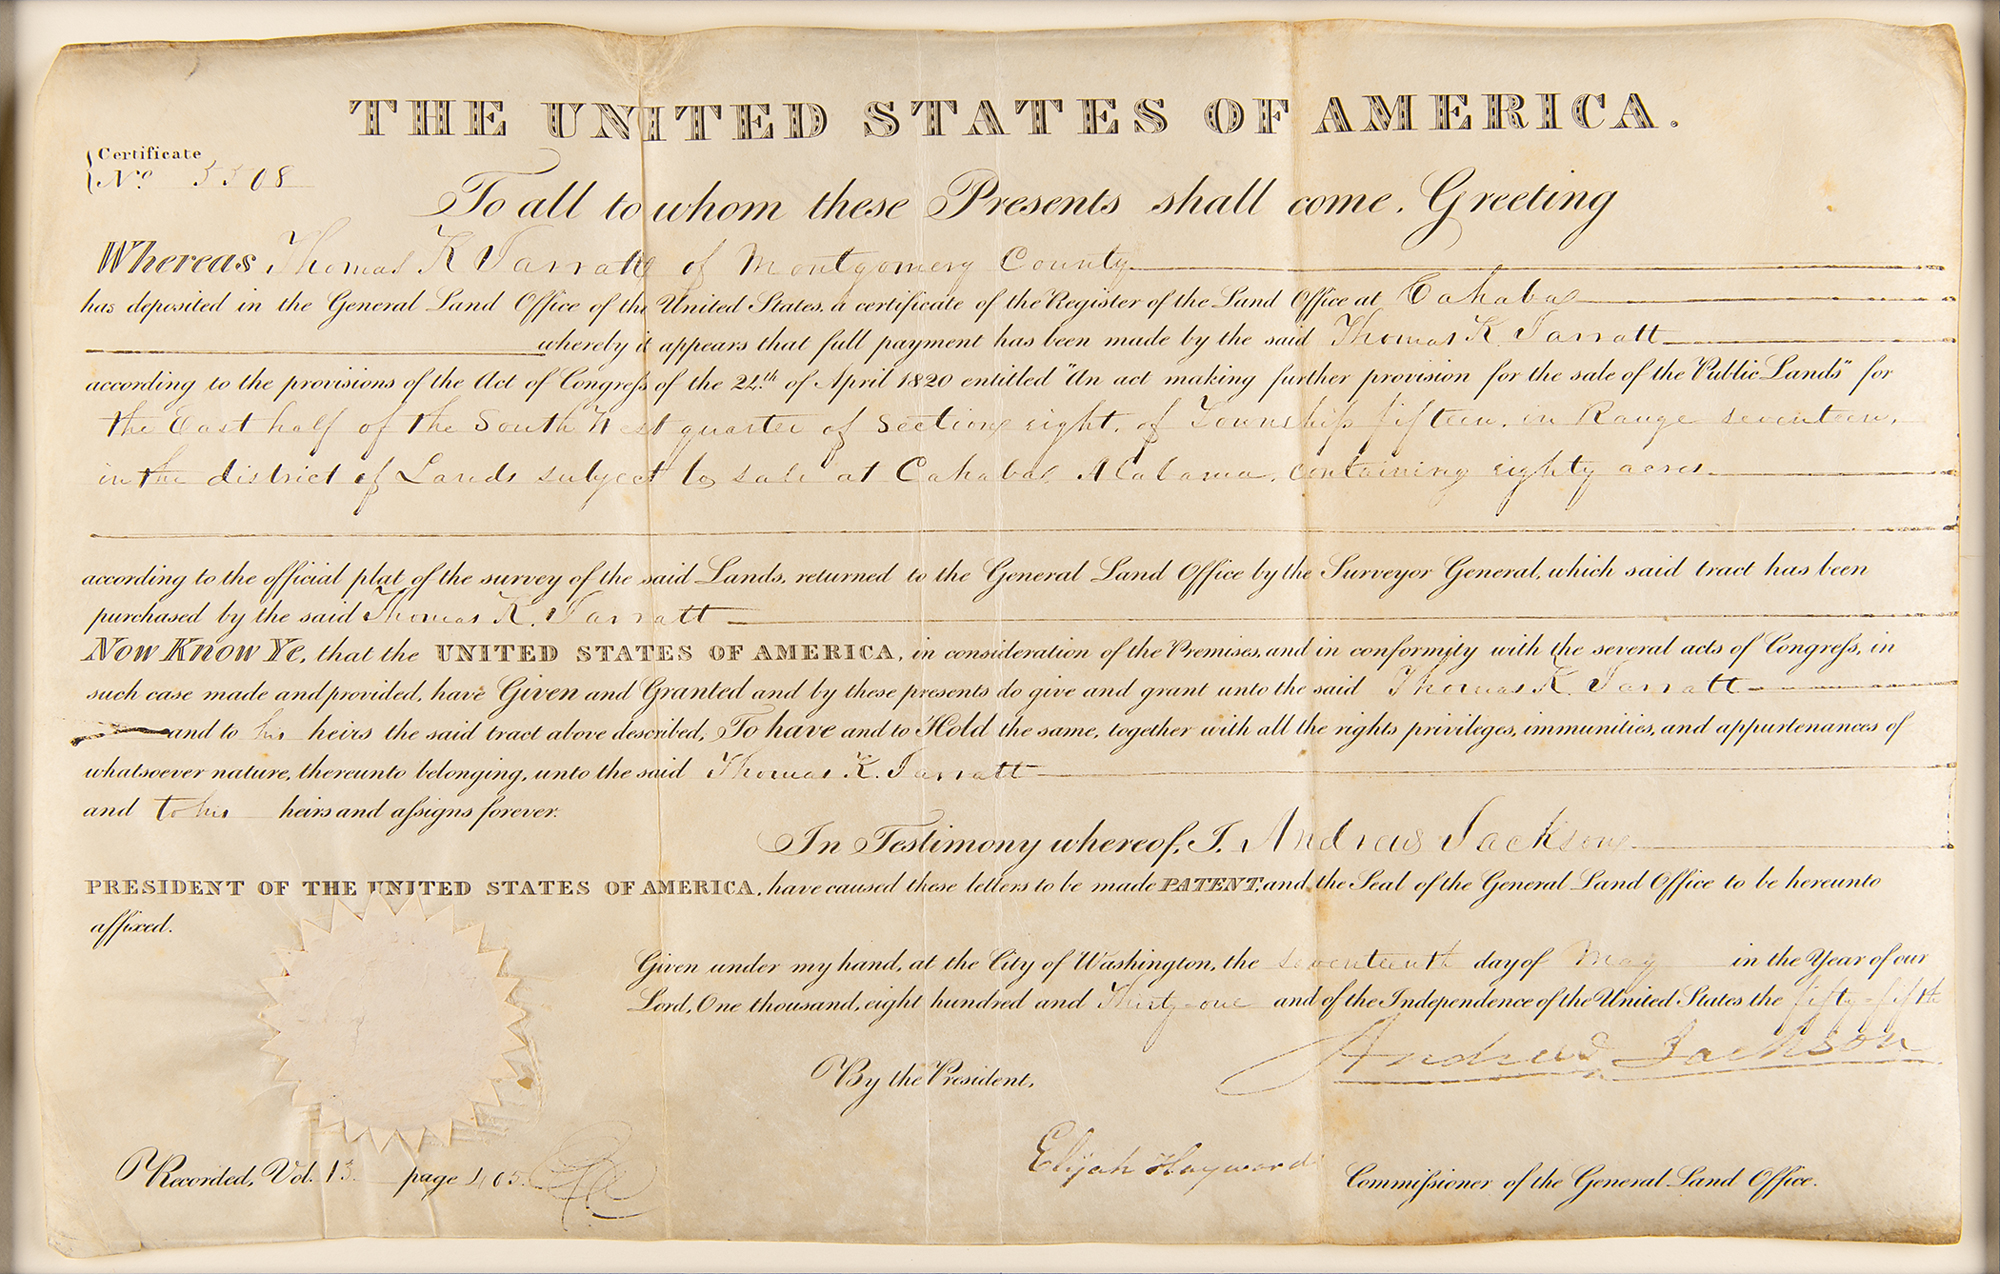 THE UNITED STATES OF AMERICA.
Certificate
No. 3308
To all to whom these Presents shall come, Greeting
Whereas Thomas K Tarratt of Montgomery County
has deposited in the General Land Office of the United States, a certificate of the Register of the Land Office at Cahaba
whereby it appears that full payment has been made by the said Thomas K. Tarratt
according to the provisions of the Act of Congress of the 24th of April 1820 entitled "An act making further provision for the sale of the Public Lands" for
the East half of the South West quarter of Section eight, of Township fifteen, in Range seventeen,
in the district of Lands subject to sale at Cahaba, Alabama, containing eighty acres
according to the official plat of the survey of the said Lands, returned to the General Land Office by the Surveyor General, which said tract has been
purchased by the said Thomas K. Tarratt
Now Know Ye, that the UNITED STATES OF AMERICA, in consideration of the Premises, and in conformity with the several acts of Congress, in
such case made and provided, have Given and Granted and by these presents do give and grant unto the said Thomas K. Tarratt
and to his heirs the said tract above described, To have and to Hold the same, together with all the rights privileges, immunities, and appurtenances of
whatsoever nature, thereunto belonging, unto the said Thomas K. Tarratt
and to his heirs and assigns forever.
In Testimony whereof, I, Andrew Jackson
PRESIDENT OF THE UNITED STATES OF AMERICA, have caused these letters to be made PATENT, and the Seal of the General Land Office to be hereunto
affixed.
Given under my hand, at the City of Washington, the seventeenth day of May in the Year of our
Lord, One thousand, eight hundred and Thirty-one and of the Independence of the United States the fifty-fifth
Andrew Jackson
By the President,
Elijah Hayward Commissioner of the General Land Office.
Recorded, Vol. 13 page 405.